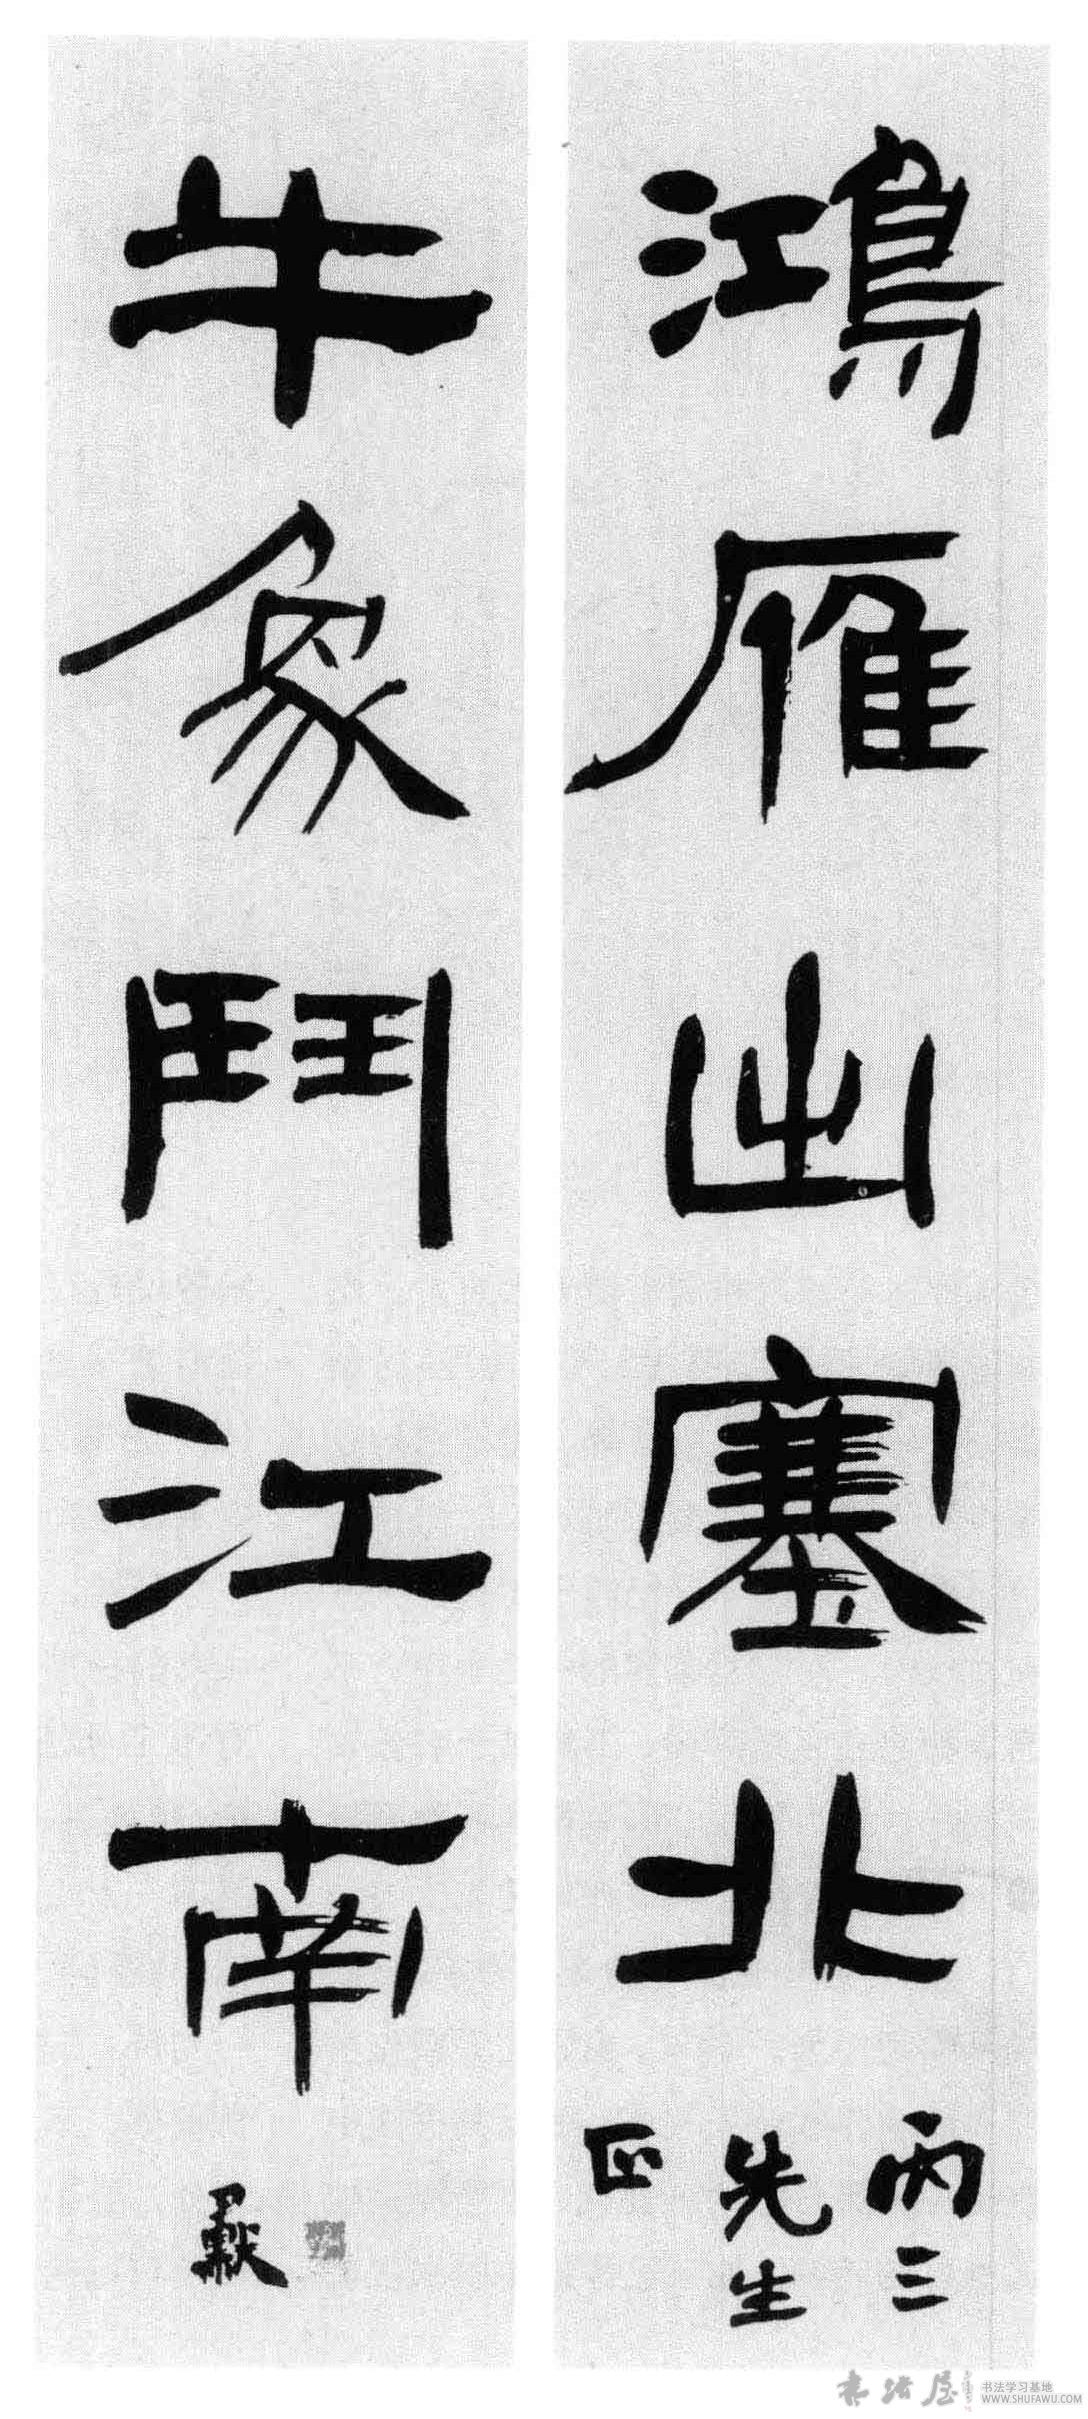 鴻雁出塞北
丙三
先生
正
牛象鬥江南
書法屋
书法学习基地
WWW.SHUFAWU.COM